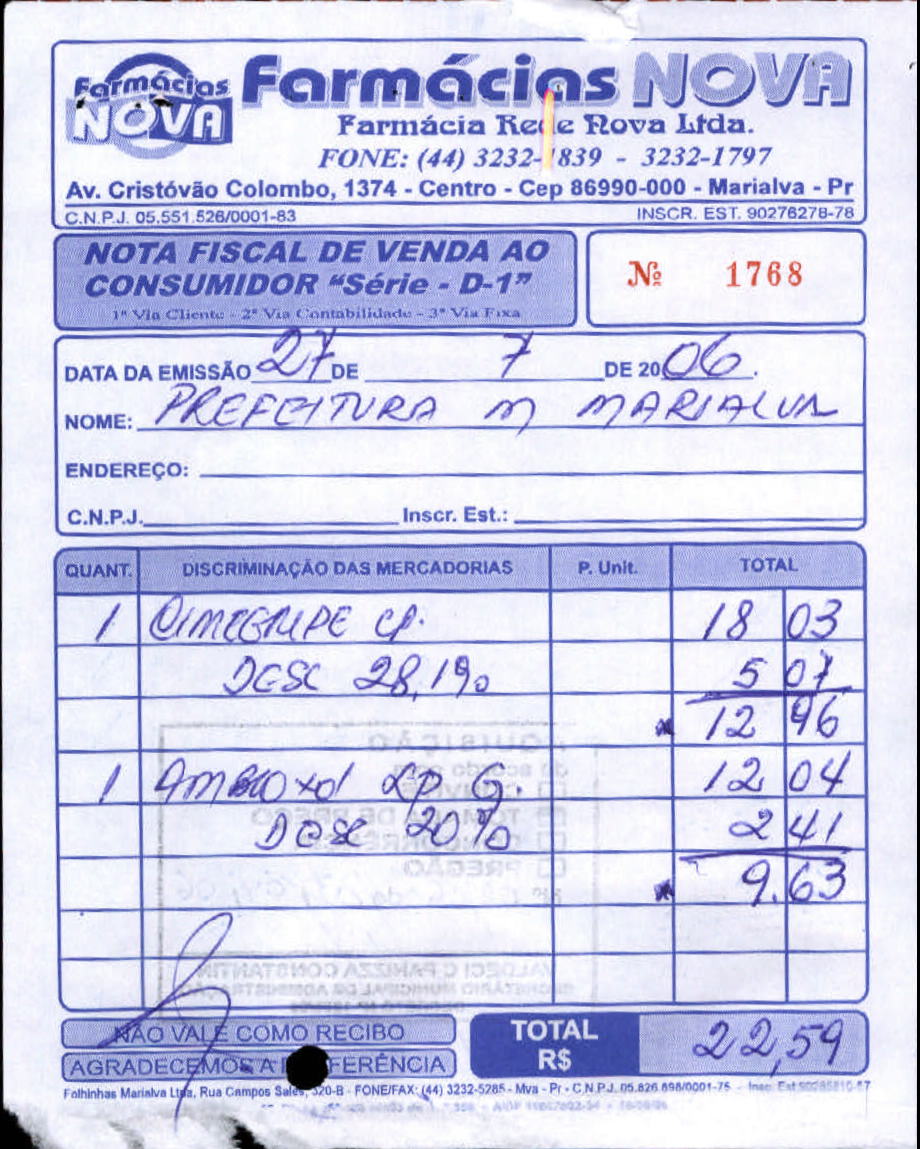 Farmácias NOVA
Farmácias NOVA
Farmácia Rede Nova Ltda.
FONE: (44) 3232-1839 - 3232-1797
Av. Cristóvão Colombo, 1374 - Centro - Cep 86990-000 - Marialva - Pr
C.N.P.J. 05.551.526/0001-83 INSCR. EST. 90276278-78
NOTA FISCAL DE VENDA AO
CONSUMIDOR “Série - D-1”
1ª Via Cliente - 2ª Via Contabilidade - 3ª Via Fixa
Nº 1768
DATA DA EMISSÃO 27 DE 7 DE 2006.
NOME: PREFEITURA M MARIALVA
ENDEREÇO:
C.N.P.J. Inscr. Est.:
QUANT. DISCRIMINAÇÃO DAS MERCADORIAS P. Unit. TOTAL
1 CIMEGRIPE CP. 18 03
DESC 28,1% 5 07
12 96
1 AMBROXOL 12 04
DESC 20% 2 41
9.63
QUISIÇÃO
de acordo com
CONVITE
TOMADA DE PREÇO
CONCORRÊNCIA
PREGÃO
VALDECI C PANIZZA CONSTANTIN
SECRETÁRIO MUNICIPAL DE ADMINISTRAÇÃO
NÃO VALE COMO RECIBO
AGRADECEMOS A PREFERÊNCIA
TOTAL R$ 22,59
Folhinhas Marialva Ltda, Rua Campos Sales, 320-B - FONE/FAX: (44) 3232-5285 - Mva - Pr - C.N.P.J. 05.826.898/0001-75 - Insc. Est